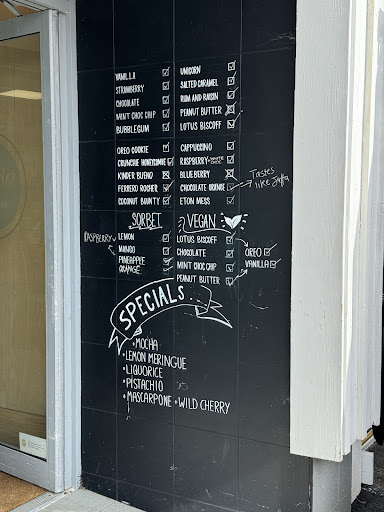 VANILLA
STRAWBERRY
CHOCOLATE
MINT CHOC CHIP
BUBBLEGUM
OREO COOKIE
CRUNCHIE HONEYCOMB
KINDER BUENO
FERRERO ROCHER
COCONUT BOUNTY
UNICORN
SALTED CARAMEL
RUM AND RAISIN
PEANUT BUTTER
LOTUS BISCOFF
CAPPUCCINO
RASPBERRY WHITE CHOC
BLUEBERRY
CHOCOLATE ORANGE
Tastes
like Jaffa
ETON MESS
SORBET
RASPBERRY
LEMON
MANGO
PINEAPPLE
ORANGE
VEGAN
LOTUS BISCOFF
CHOCOLATE
MINT CHOC CHIP
PEANUT BUTTER
OREO
VANILLA
SPECIALS
• MOCHA
• LEMON MERINGUE
• LIQUORICE
• PISTACHIO
• MASCARPONE + WILD CHERRY